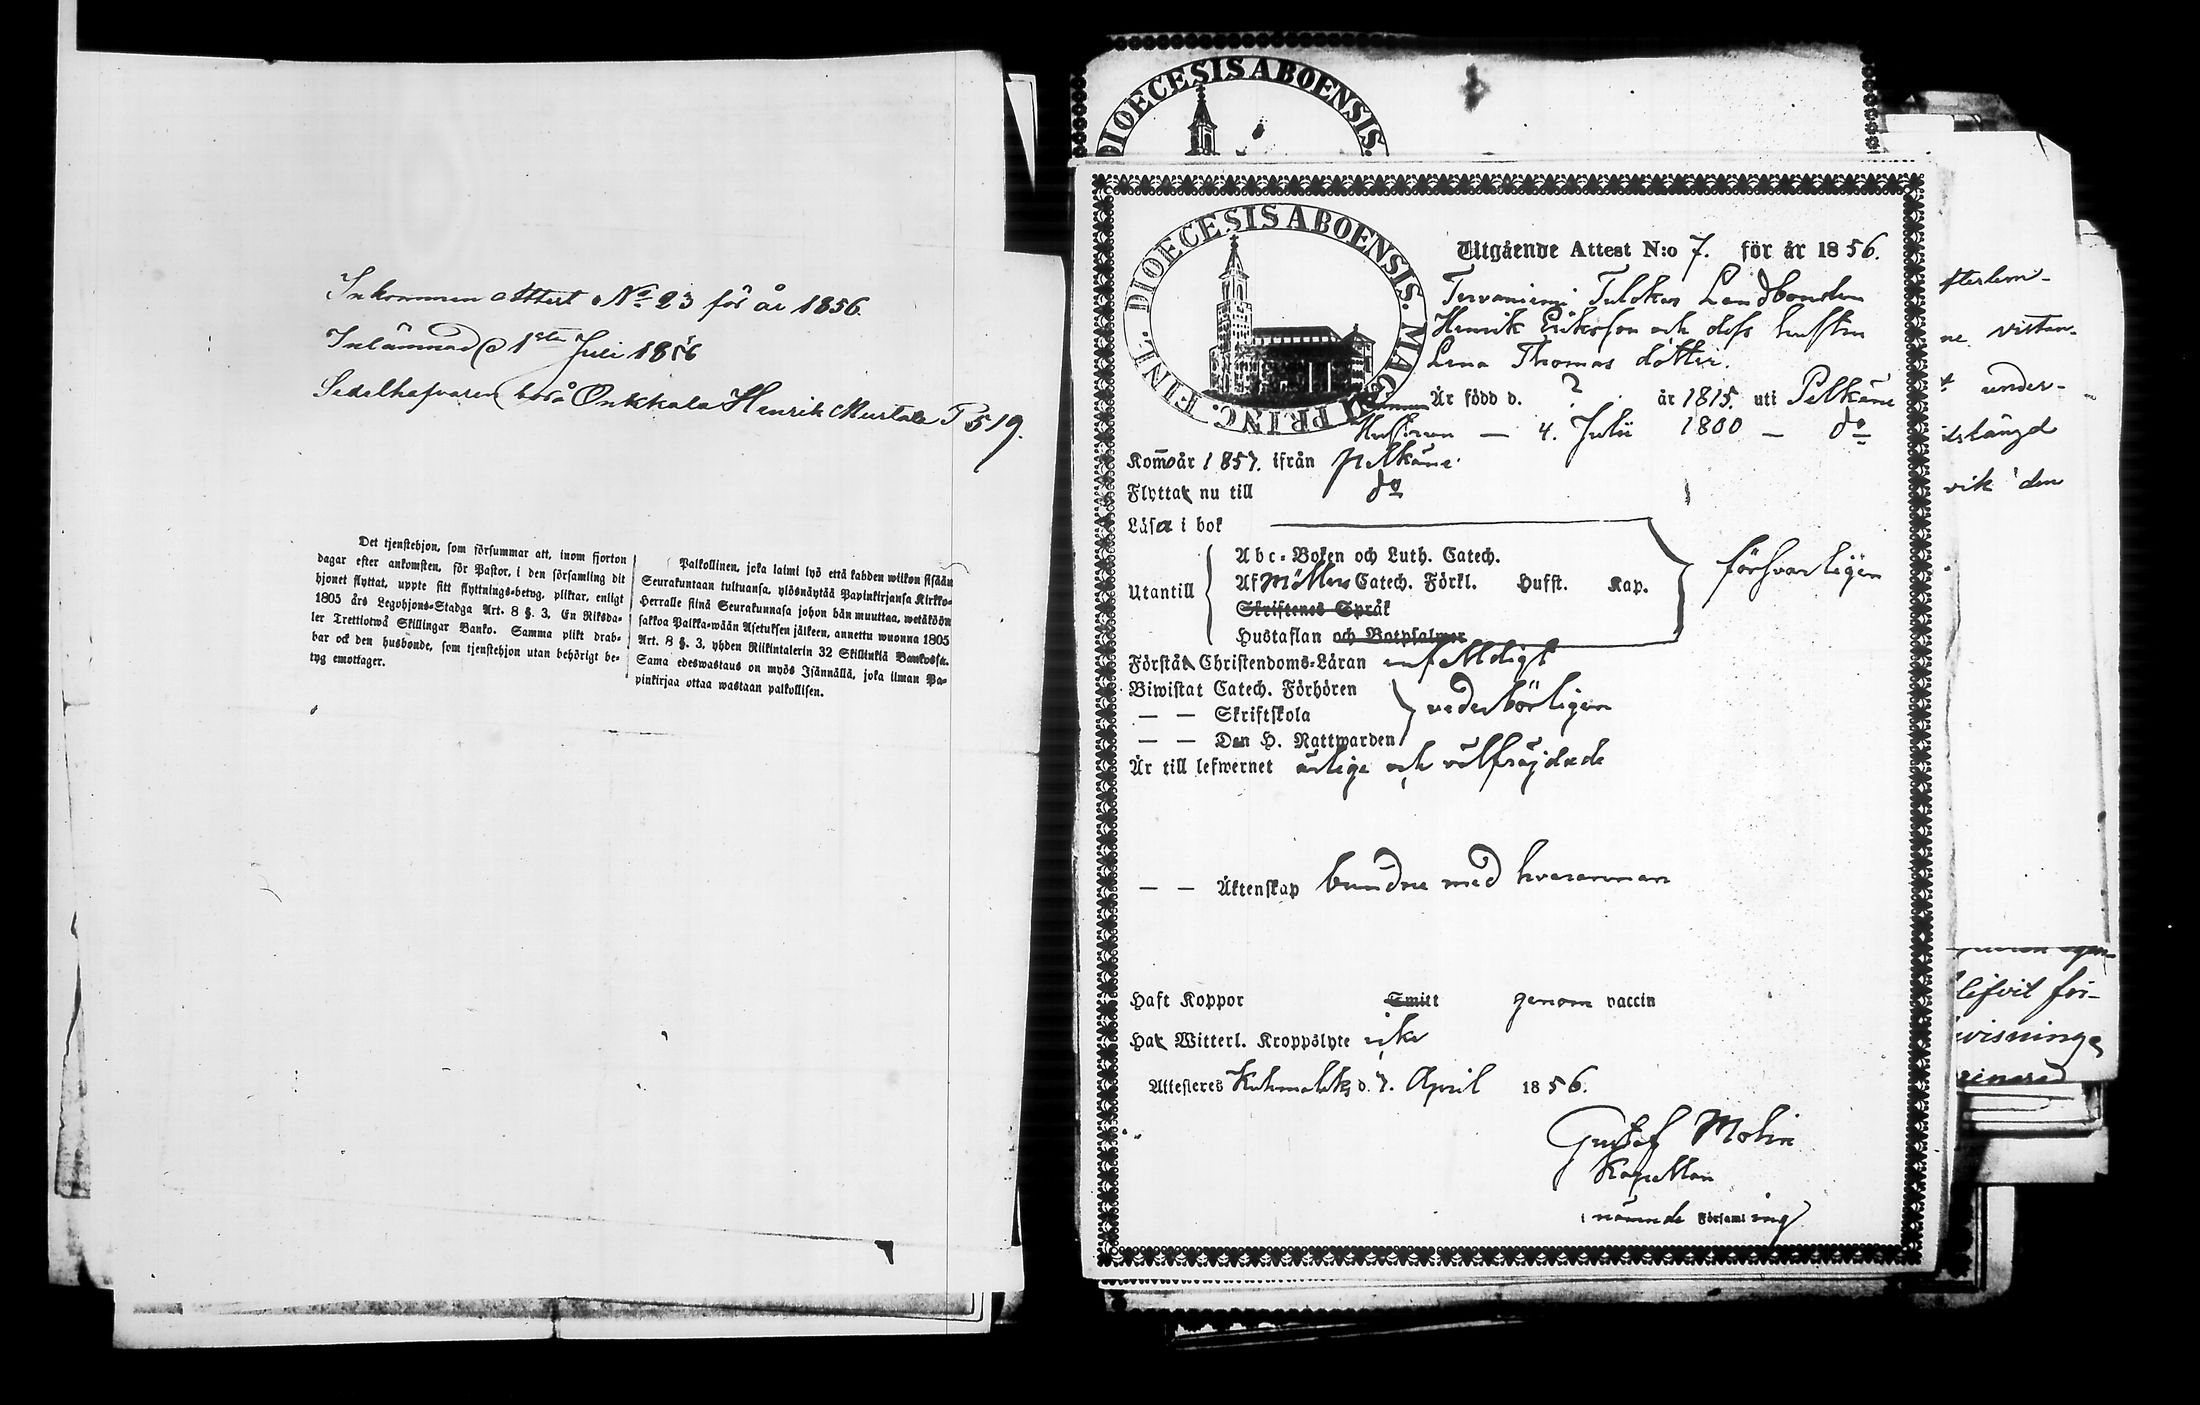 Inkommen Attest No 23 för år 1856.
Inlämnad d 1sta Juli 1856
Sedelhafvaren boså Onkkala Henrik Murtala P 519.
Det tjenstehjon, som försummar att, inom fjorton
dagar efter ankomsten, för Pastor, i den församling dit
hjonet flyttat, uppte sitt flyttnings-betyg, pliktar, enligt
1805 års Legohjons-Stadga Art. 8 §. 3, En Riksda-
ler Trettiotwå Skillingar Banko. Samma plikt drab-
bar ock den husbonde, som tjenstehjon utan behörigt be-
tyg emottager.
Palkollinen, joka laimi lyö että kahden wiikon sisään
Seurakuntaan tultuansa, ylösnäytää Papinkirjansa Kirkko-
Herralle siinä Seurakunnasa johon hän muuttaa, wetäköön
sakkoa Palkka-wään Asetuksen jälkeen, annettu wuonna 1805
Art. 8 §. 3, yhden Riikintalerin 32 Skillinkiä Bankossa.
Sama edeswastaus on myös Isännällä, joka ilman Pa-
pinkirjaa ottaa wastaan palkollisen.
DIOECESIS ABOENSIS.
DIOECESIS ABOENSIS. MAG. PRINC. FINL.
Utgående Attest N:o 7. för år 1856.
Tervaniemi Tulokas Landbonden
Henrik Eriksson och dess hustru
Lena Thomas dotter.
Är född d. ? år 1815. uti Pelkäne
Hustrun — 4. Julii 1800 — do
Kom̄o år 1857. ifrån Pelkäne
Flytta nu till do
Läsa i bok
Abc-Boken och Luth. Catech.
Utantill Af Möllers Catech. Förkl. Husst. Kap. försvarligen
Skriftenes Språk
Hustaflan och Botpsalmer
Förstå Christendoms-Läran enfaldigt
Biwistat Catech. Förhören
— — Skriftskola vederbörligen
— — Den H. Nattwarden
Är till lefwernet ärlige och välfräjdade
— — Äktenskap bundne med hvarannan
Haft Koppor Smitt genom vaccin
Ha Witterl. Kroppslyte icke
Attesteres Kuhmalaks d. 7. April 1856.
Gustaf Molin
Kapellan
i nämnde Församling
under-
vik den